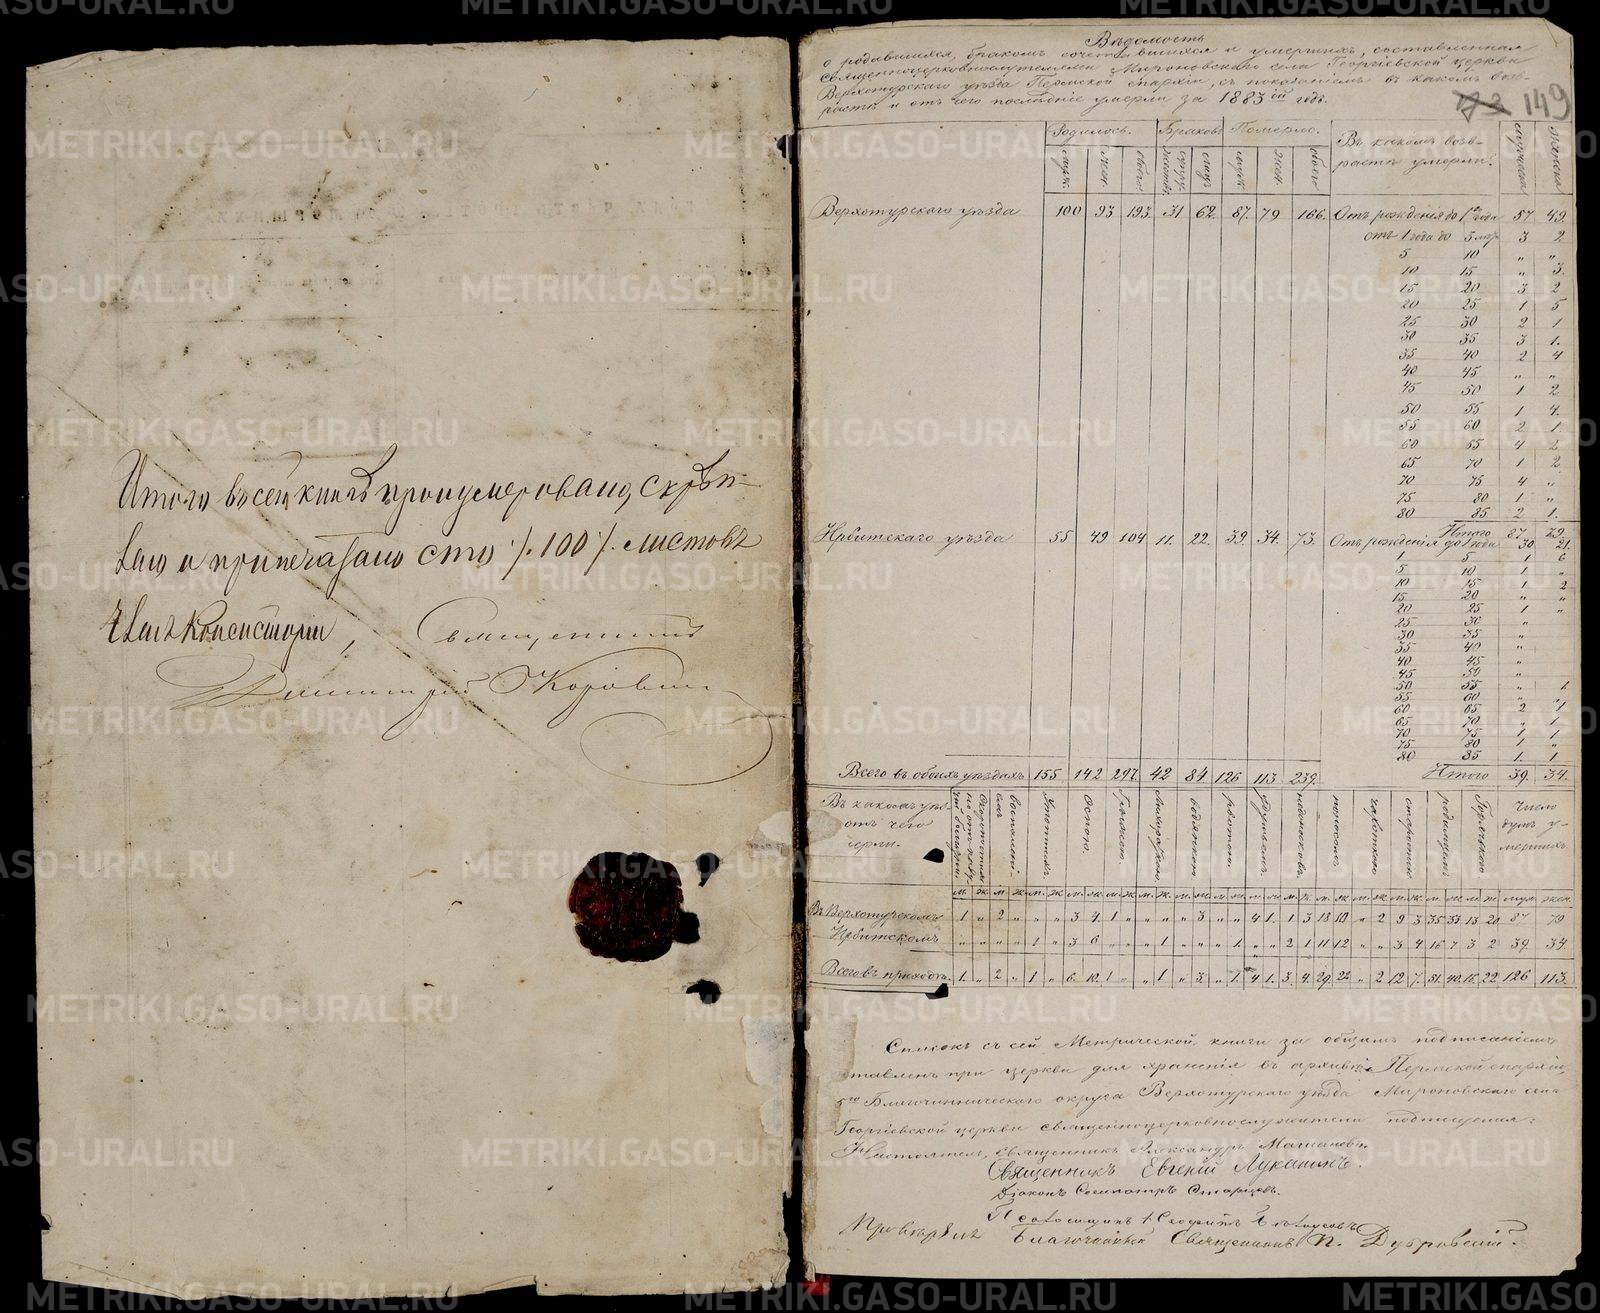 Итого въ сей книгѣ пронумеровано, скрѣп-
лено и припечатано сто /. 100 /. листовъ
Членъ Консисторіи, Священникъ
Димитрій Коровин
Вѣдомость
о родившихся, бракомъ сочетавшихся и умершихъ, составленная
священноцерковнослужителями Мироновскаго села Георгіевской церкви
Верхотурскаго уѣзда Пермской епархіи, съ показаніемъ въ какомъ воз-
растѣ и отъ чего послѣдніе умерли за 1883ій годъ.
149
Родилось. Браковъ Померло. Въ какомъ воз-
растѣ умерли? мужеска женска
муж. жен. обоего супружествъ лицъ муж. жен. обоего
Верхотурскаго уѣзда 100 93 193. 31 62. 87. 79 166. Отъ рожденія до 1го года 57. 49.
отъ 1 года до 5 лѣтъ 3 2
5 10 „ „
10 15 „ 3.
15 20 3 2
20 25 1 5
25 30 2 1
30 35 3 1.
35 40 2 4
40 45 „ „
45 50 1 2
50 55 1 4.
55 60 2 1.
60 65 4 2
65 70 1 2
70 75 4 „
75 80 1 „
80 85 2 1.
Итого 87. 79.
Ирбитскаго уѣзда 55 49 104 11. 22. 39. 34. 73. Отъ рожденія до 1 года 30 21.
1 5 1 6
5 10 1 „
10 15 1 2
15 20 „ „
20 25 1 „
25 30 „
30 35 „
35 40 „
40 45 „
45 50 „
50 55 „ 1.
55 60 „ „
60 65 2 1
65 70 „ 1
70 75 1 1
75 80 1 „
80 85 1. 1
Всего въ обоихъ уѣздахъ 155 142 297. 42 84 126 113 239. Итого 39. 34.
Въ какомъ уѣз-
отъ чего
мерли.
Оспою. водянкою рвотою. удушьемъ. поносомъ. чахоткою старостію родимцемъ Горячкою. Число
душъ у-
мершихъ
м. ж. м. ж. м. ж. м. ж. м. ж. м. ж. м. ж. м. ж. м. ж. м. ж. м. ж. м. ж. м. ж. м. ж. муж. жен.
Въ Верхотурскомъ 1 „ 2 „ „ „ 3 4 1 „ „ „ „ 3 „ „ 4 1. 1 3 18 10 „ 2 9 3 35 33 13 20 87 79
Ирбитскомъ „ „ „ „ 1 „ 3 6 „ „ „ 1 „ „ „ 1. „ „ 2 1 11 12 „ „ 3 4 16 7 3 2 39. 34.
Всего въ приходѣ. 1. „ 2 „ 1 „ 6. 10. 1 „ „ 1 „ 3. „ 1. 4 1. 3. 4. 29. 22 „ 2 12 7. 51. 40. 16. 22 126 113.
Списокъ съ сей Метрической книги за общимъ подписаніемъ
ставленъ при церкви для храненія въ архивѣ. Пермской епархіи,
5го Благочинническаго округа Верхотурскаго уѣзда Мироновскаго села
Георгіевской церкви священноцерковнослужители подписуемся:
Настоятель, священникъ Александръ
Священникъ Евгеній Луканинъ.
Діаконъ Сосипатръ Старцевъ.
Псаломщикъ
Провѣрялъ Благочинный Священникъ П. Дубровскій.
METRIKI.GASO-URAL.RU